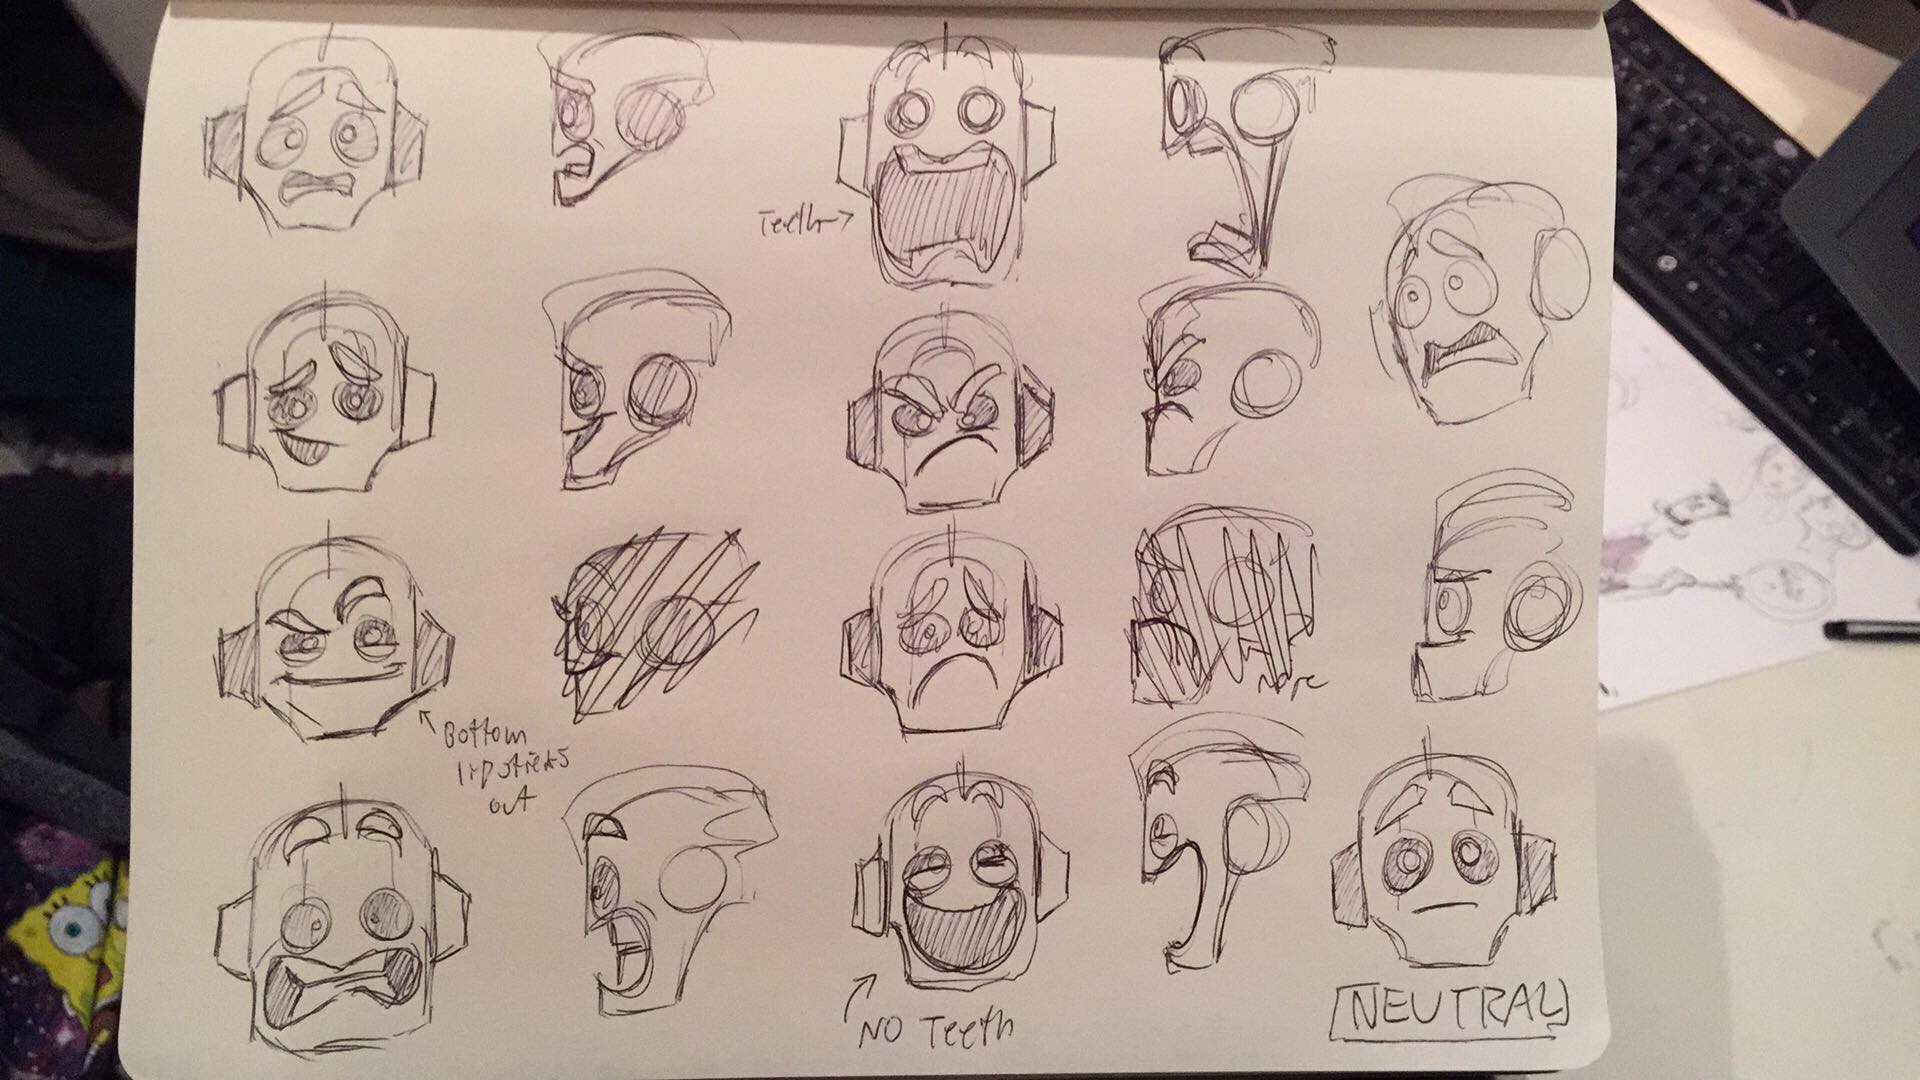 Teeth
Nope
Bottom
lip sticks
out
NO Teeth
NEUTRAL